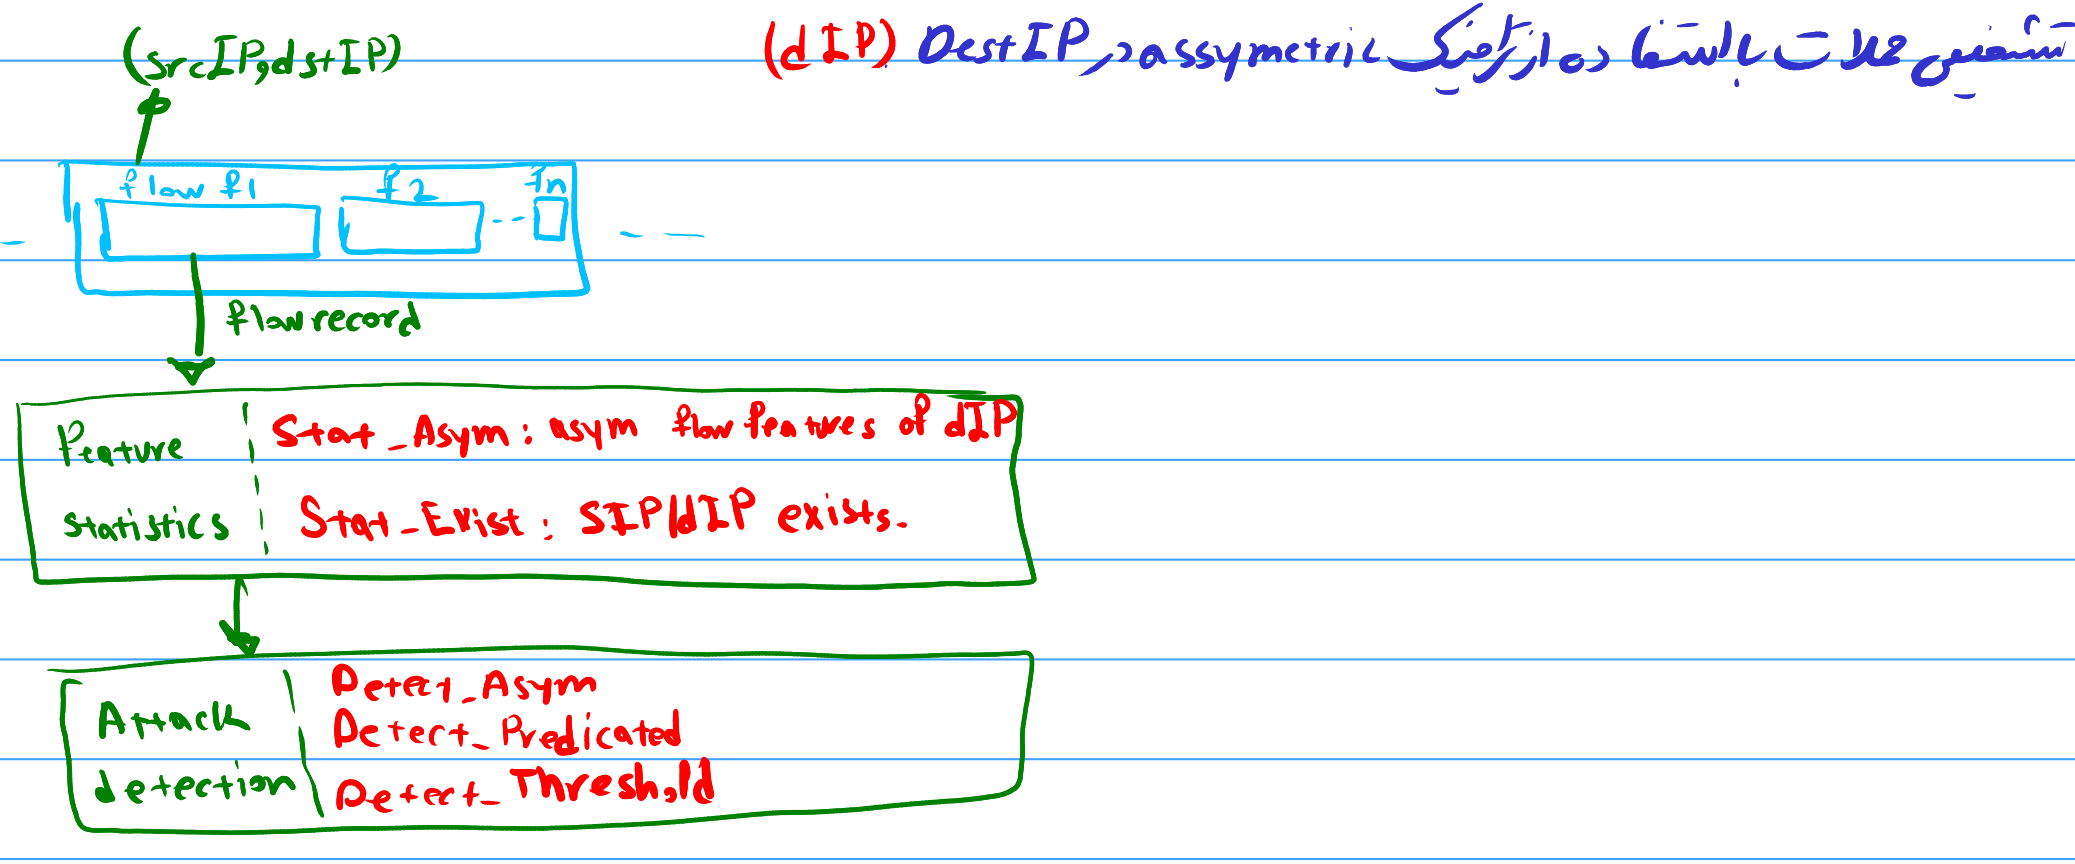 تشخیص حملات با استفاده از ترافیک assymetric در DestIP (dIP)
(srcIP,dstIP)
flow f1 f2 -- fn
flow record
Feature statistics
Stat_Asym: asym flow features of dIP
Stat_Exist: SIP/dIP exists.
Attack detection
Detect_Asym
Detect_Predicated
Detect_Threshold